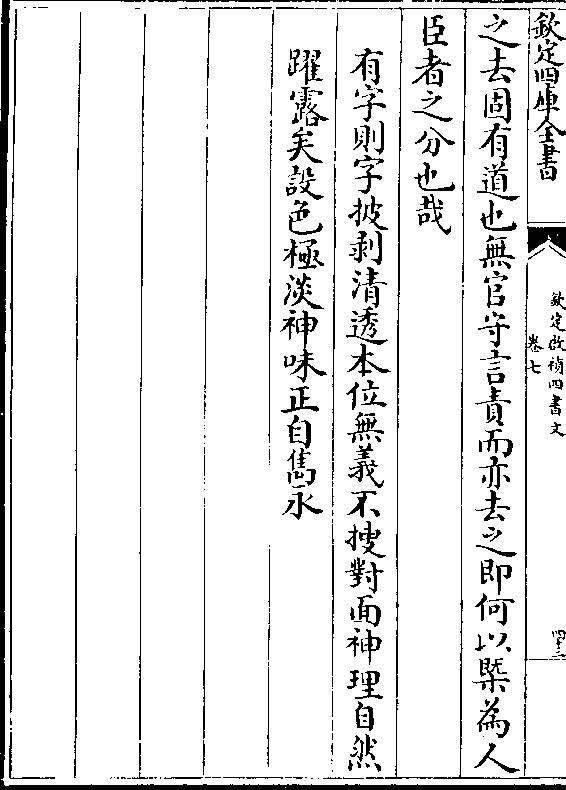 欽定四庫全書
欽定啟禎四書文
卷七
四十三
之去固有道也無官守言責而亦去之即何以槩為人
臣者之分也哉
有字則字披剥清透本位無義不搜對面神理自然
躍露矣設色極淡神味正自雋永